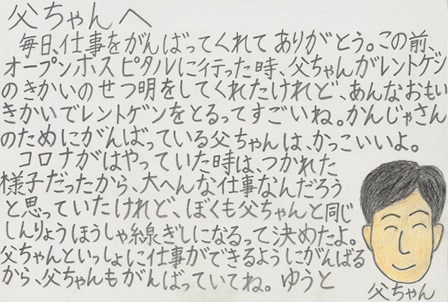 父ちゃんへ
毎日、仕事をがんばってくれてありがとう。この前、
オープンホスピタルに行った時、父ちゃんがレントゲン
のきかいのせつ明をしてくれたけれど、あんなおもい
きかいでレントゲンをとるってすごいね。かんじゃさん
のためにがんばっている父ちゃんは、かっこいいよ。
コロナがはやっていた時は、つかれた
様子だったから、大へんな仕事なんだろう
と思っていたけれど、ぼくも父ちゃんと同じ
しんりょうほうしゃ線ぎしになるって決めたよ。
父ちゃんといっしょに仕事ができるようにがんばる
から、父ちゃんもがんばっていてね。ゆうと
父ちゃん